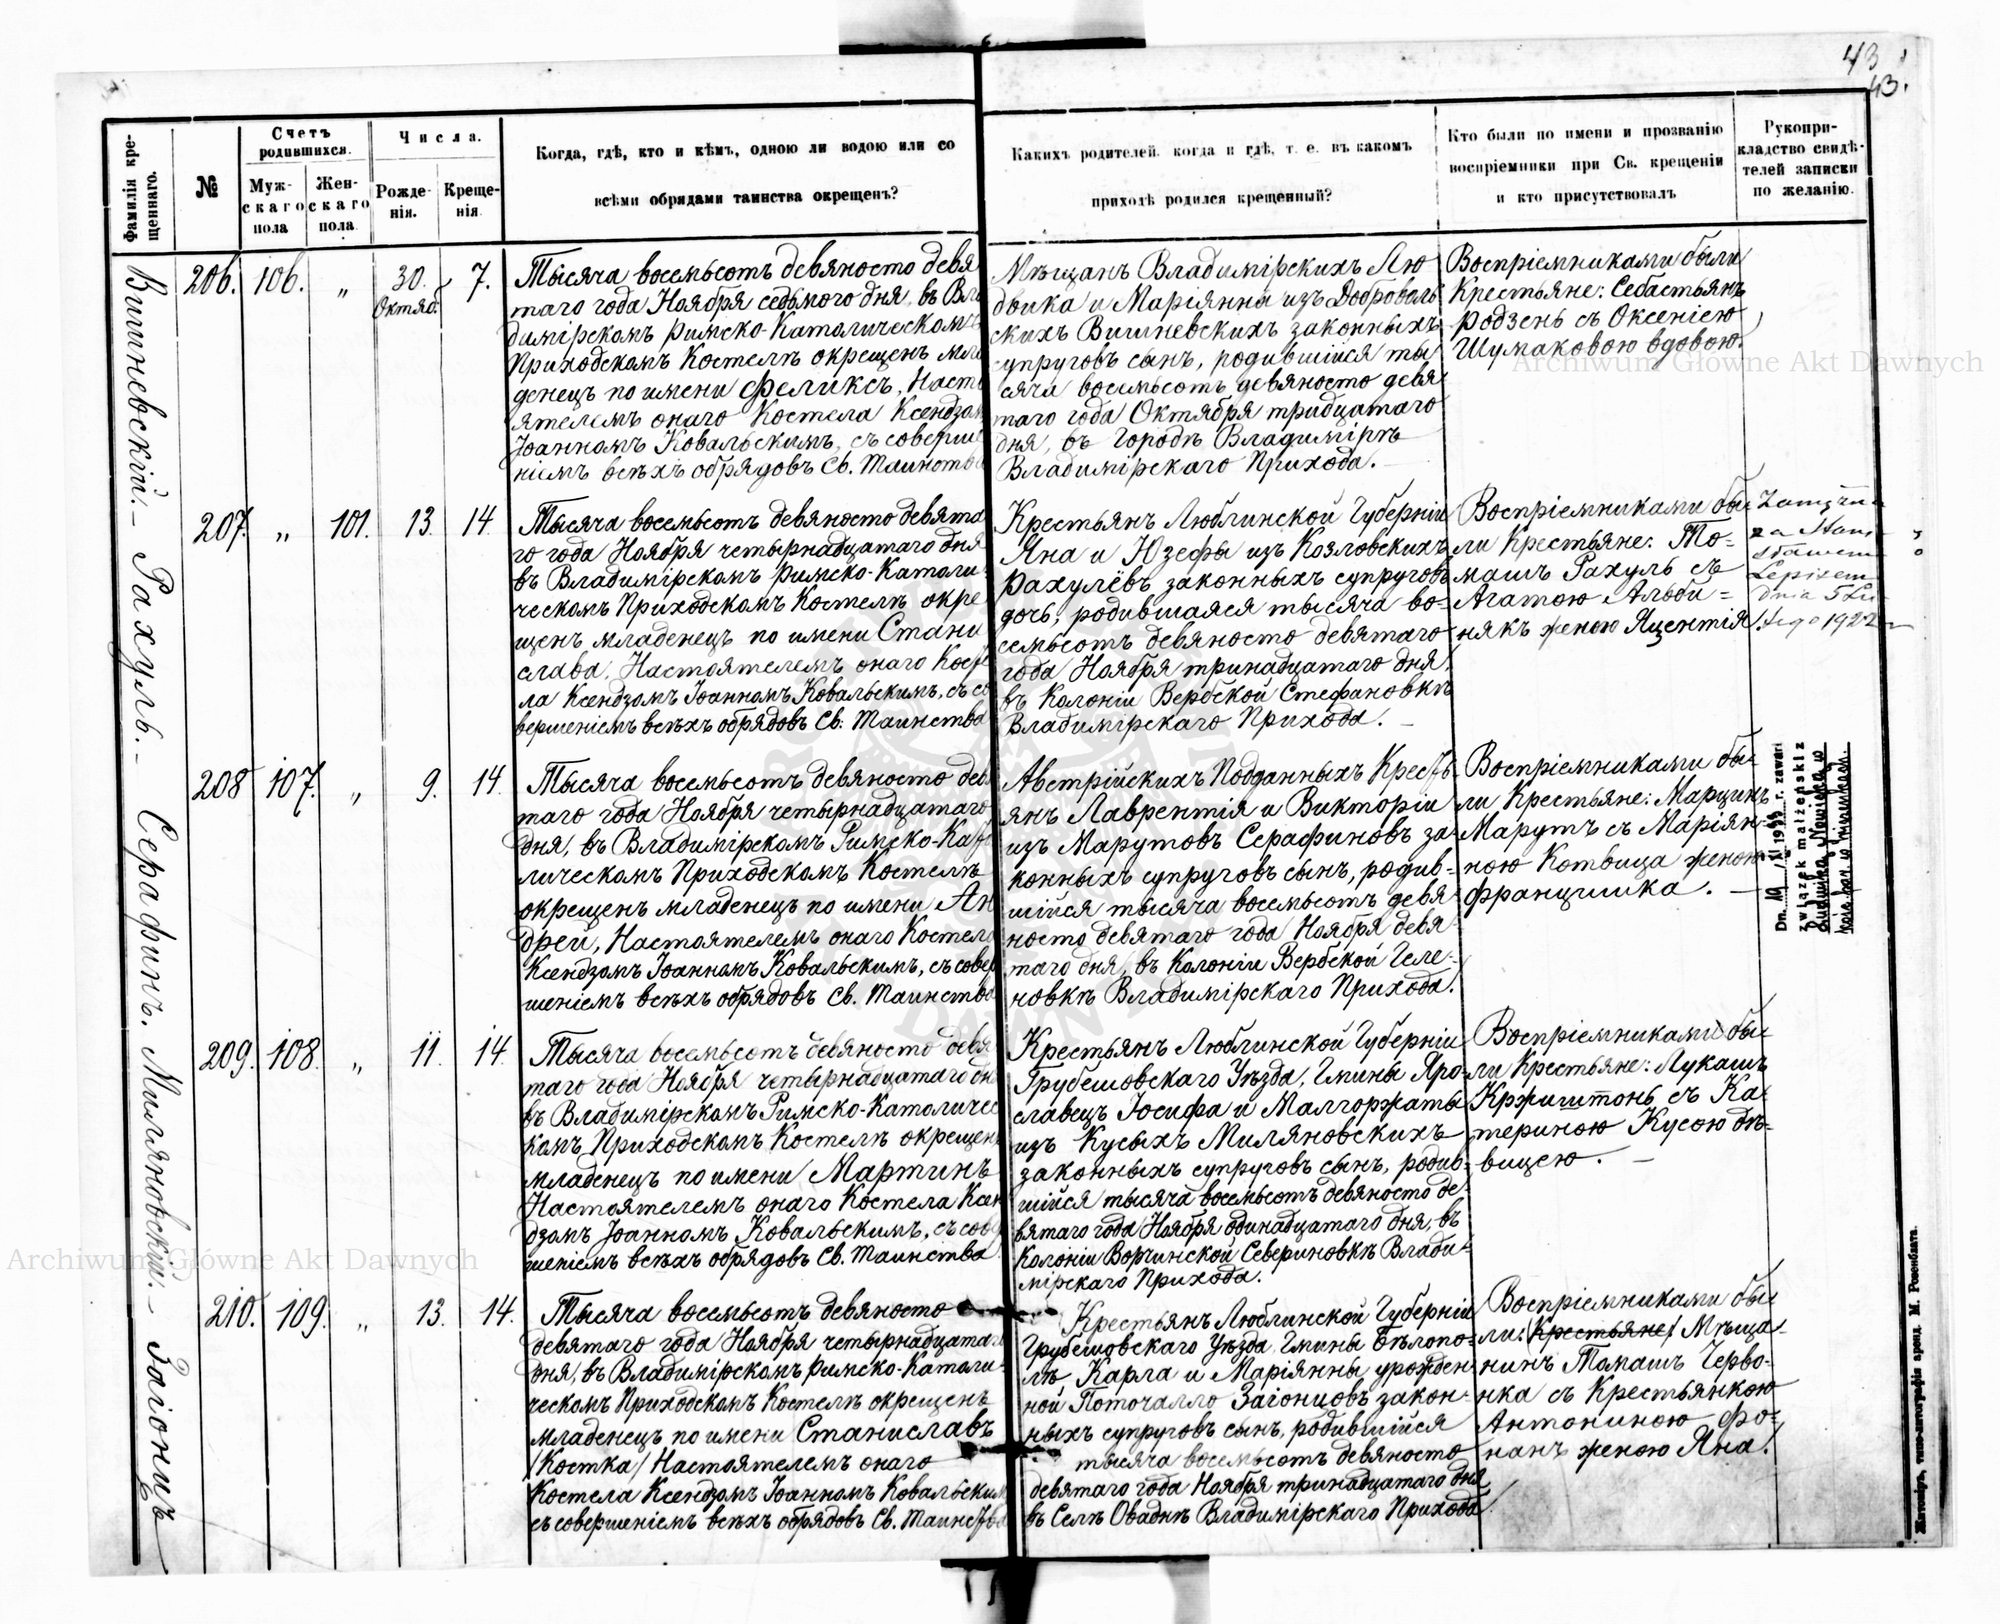 43
43.
Фамилія кре-
щеннаго.
№
Счетъ
родившихся.
Муж-
скаго
пола
Жен-
скаго
пола
Числа.
Рожде-
нія.
Креще-
нія.
Когда, гдѣ, кто и кѣмъ, одною ли водою или со
всѣми обрядами таинства окрещенъ?
Каких родителей, когда и гдѣ, т. е. въ какомъ
приходѣ родился крещенный?
Кто были по имени и прозванію
воспріемники при Св. крещеніи
и кто присутствовалъ
Рукопри-
кладство свидѣ-
телей записки
по желанію.
Вишневскій.
206. 106. „ 30. Октяб. 7.
Тысяча восемьсотъ девяносто девя
таго года Ноября седьмого дня, въ Вла
димірскомъ Римско-Католическомъ
Приходскомъ Костелѣ окрещенъ мла
денецъ по имени Феликсъ, Насто
ятелемъ онаго Костела Ксендзом
Іоанномъ Ковальскимъ, съ соверше
ніемъ всѣхъ обрядовъ Св. Таинства
Мѣщанъ Владимірскихъ Лю
двика и Маріянны изъ Доброволь
скихъ Вишневскихъ законныхъ
супруговъ сынъ, родившійся ты
сяча восемьсотъ девяносто девя
таго года Октября тридцатаго
дня, въ Городѣ Владимірѣ
Владимірскаго Прихода. –
Воспріемниками были
Крестьяне: Себастьянъ
Родзень съ Оксеніею
Шумаковою вдовою.
Рахуль.
207. „ 101. 13. 14.
Тысяча восемьсотъ девяносто девята
го года Ноября четырнадцатаго дня
въ Владимірскомъ Римско-Католи
ческомъ Приходскомъ Костелѣ окре
щенъ младенецъ по имени Стани
слава, Настоятелемъ онаго Косте
ла Ксендзомъ Іоанномъ Ковальскимъ, съ со
вершеніемъ всѣхъ обрядовъ Св. Таинства
Крестьянъ Люблинской Губерніи
Яна и Юзефы изъ Козловскихъ
Рахулёвъ законныхъ супруговъ
дочь, родившаяся тысяча во-
семьсотъ девяносто девятаго
года Ноября тринадцатаго дня,
въ Колоніи Вербской Стефановкѣ
Владимірскаго Прихода. –
Воспріемниками бы
ли Крестьяне: То-
машъ Рахуль съ
Агатою Альби-
някъ женою Яцентія.
Zamężna
za Stani
sławem
Łepiszem
dnia 5 Lu
tego 1922
Серафинъ.
208 107. „ 9. 14.
Тысяча восемьсотъ девяносто девя
таго года Ноября четырнадцатаго
дня, въ Владимірскомъ Римско-Като
лическомъ Приходскомъ Костелѣ
окрещенъ младенецъ по имени Ан
дрей, Настоятелемъ онаго Костела
Ксендзомъ Іоанномъ Ковальскимъ, съ совер
шеніемъ всѣхъ обрядовъ Св. Таинства
Австрійскихъ Подданныхъ Кресть
янъ Лаврентія и Викторіи
изъ Марутовъ Серафиновъ за-
конныхъ супруговъ сынъ, родив-
шійся тысяча восемьсотъ девя
носто девятаго года Ноября девя-
таго дня, въ Колоніи Вербской Геле-
новкѣ Владимірскаго Прихода.
Воспріемниками бы-
ли Крестьяне: Марцинъ
Марутъ съ Маріян-
ною Котвица женою
Францишка. –
r. zawarł
związek małżeński z
Милляновскій.
209. 108. „ 11. 14.
Тысяча восемьсотъ девяносто девя
таго года Ноября четырнадцатаго дн
въ Владимірскомъ Римско-Католичес
комъ Приходскомъ Костелѣ окрещенъ
младенецъ по имени Мартинъ
Настоятелемъ онаго Костела Ксен
дзомъ Іоанномъ Ковальскимъ, съ сове
шеніемъ всѣхъ обрядовъ Св. Таинства
Крестьянъ Люблинской Губерніи
Грубешовскаго Уѣзда, Гмины Яро-
славецъ Іосифа и Малгоржаты
изъ Кусыхъ Миляновскихъ
законныхъ супруговъ сынъ, родив-
шійся тысяча восемьсотъ девяносто де-
вятаго года Ноября одинадцатаго дня, въ
Колоніи Ворчинской Севериновкѣ Влади-
мірскаго Прихода.
Воспріемниками бы-
ли Крестьяне: Лукашъ
Кржиштонь съ Ка-
териною Кусою дѣ-
вицею. –
Загіонцъ
210. 109. „ 13. 14.
Тысяча восемьсотъ девяносто
девятаго года Ноября четырнадцатаго
дня, въ Владимірскомъ Римско-Католи
ческомъ Приходскомъ Костелѣ окрещенъ
младенецъ по имени Станиславъ
/Костка/ Настоятелемъ онаго
Костела Ксендзомъ Іоанномъ Ковальским
съ совершеніемъ всѣхъ обрядовъ Св. Таинства
Крестьянъ Люблинской Губерніи
Грубешовскаго Уѣзда, Гмины Бѣлопо-
лѣ Карла и Маріянны урожден-
ной Поточалло Загіонцовъ закон-
ныхъ супруговъ сынъ, родившійся
тысяча восемьсотъ девяносто
девятаго года Ноября тринадцатаго дня
въ Селѣ Оваднѣ Владимірскаго Прихода
Воспріемниками бы-
ли: /Крестьяне/ Мѣща-
нинъ Томашъ Черво-
нка съ Крестьянкою
Антониною Фо-
нанъ женою Яна.
Житоміръ, типо-литографія аренд. М. Розенблата.
Archiwum Główne Akt Dawnych
Archiwum Główne Akt Dawnych